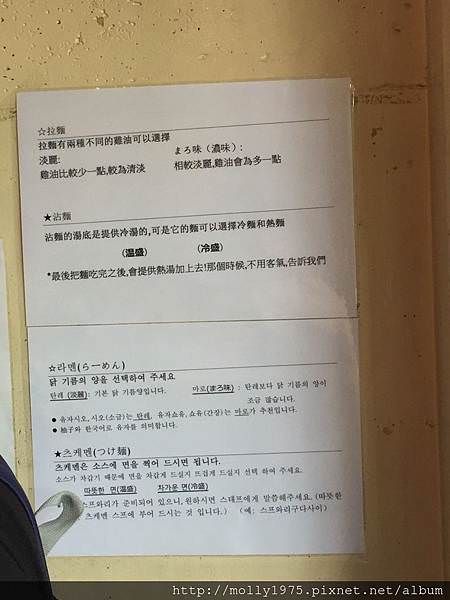 ☆拉麵
拉麵有兩種不同的雞油可以選擇
淡麗: まろ味（濃味）:
雞油比較少一點,較為清淡 相較淡麗,雞油會為多一點
★沾麵
沾麵的湯底是提供冷湯的,可是它的麵可以選擇冷麵和熱麵
(温盛) (冷盛)
*最後把麵吃完之後,會提供熱湯加上去!那個時候,不用客氣,告訴我們
☆라멘(らーめん)
닭 기름의 양을 선택하여 주세요
탄레 (淡麗): 기본 닭 기름양입니다. 마로(まろ味) : 탄레보다 닭 기름의 양이
조금 많습니다.
● 유자시오, 시오(소금)는 탄레, 유자쇼유, 쇼유(간장)는 마로가 추천입니다.
● 柚子와 한국어로 유자를 의미합니다.
★츠케멘(つけ麺)
츠케멘은 소스에 면을 찍어 드시면 됩니다.
소스가 차갑기 때문에 면을 차갑게 드실지 뜨겁게 드실지 선택 하여 주세요.
따뜻한 면(温盛) 차가운 면(冷盛)
스프와리가 준비되어 있으니, 원하시면 스태프에게 말씀해주세요. (따뜻한
츠케멘 스프에 부어 드시는 것 입니다.) (예: 스프와리구다사이)
http://molly1975.pixnet.net/album